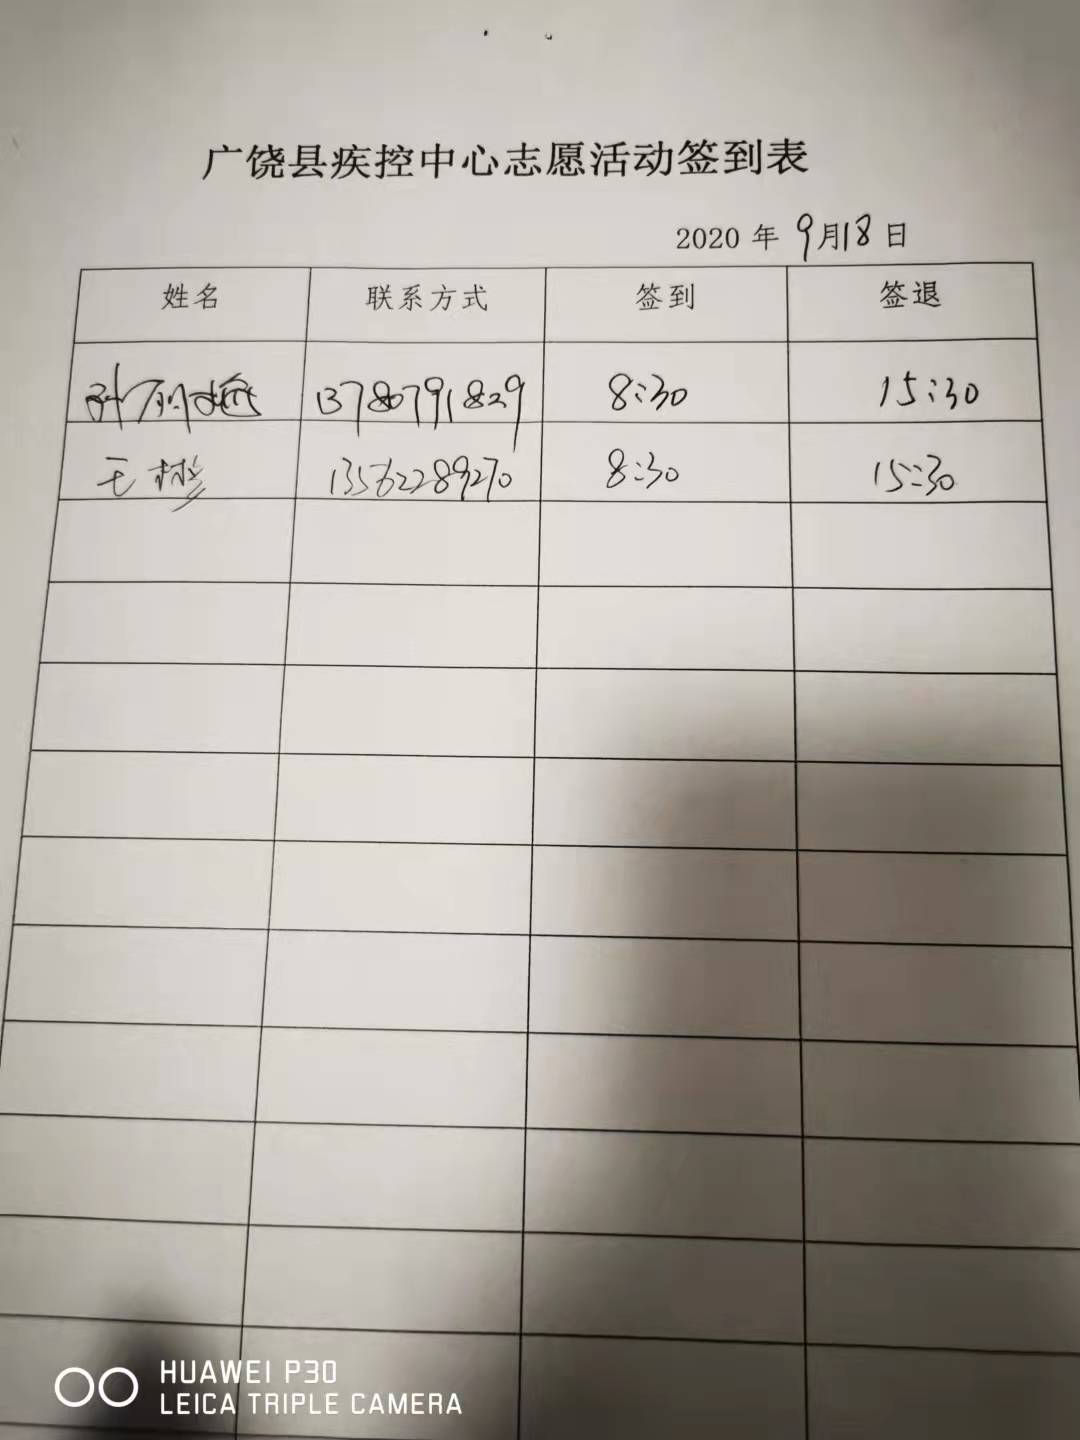 广饶县疾控中心志愿活动签到表
2020 年 9月18日
姓名 联系方式 签到 签退
孙丽梅 13780791829 8:30 15:30
王彬 13562289270 8:30 15:30
HUAWEI P30
LEICA TRIPLE CAMERA